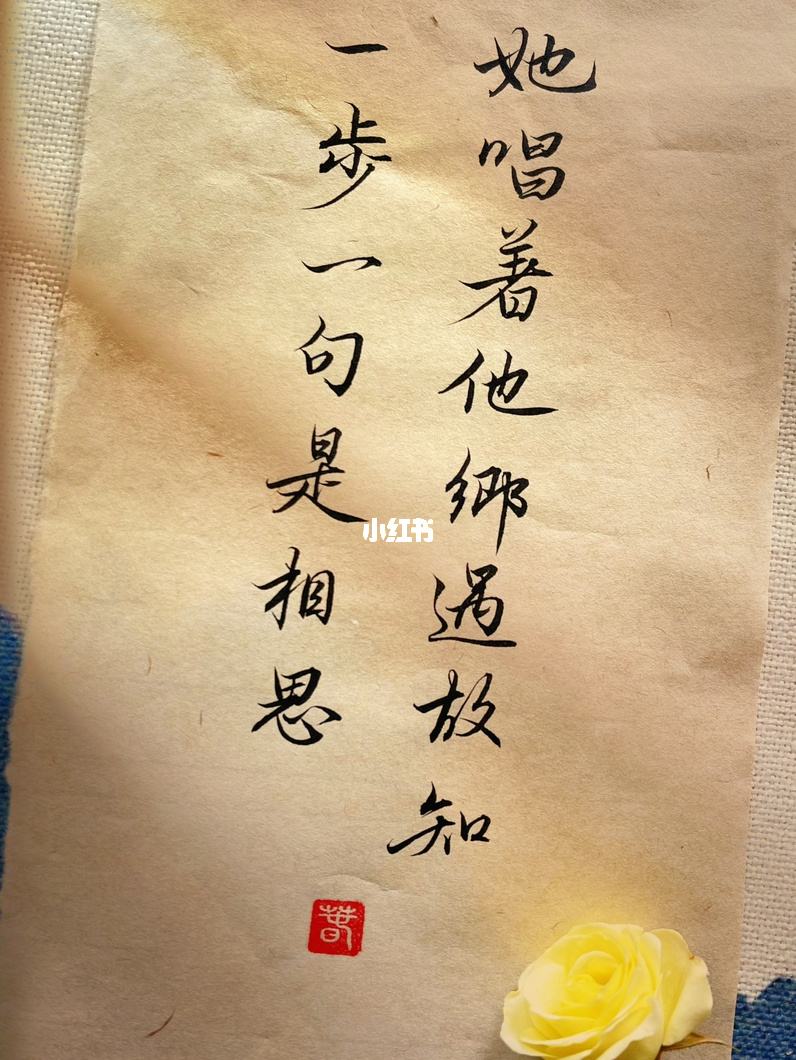 她唱着他鄉遇故知
一步一句是相思
小红书